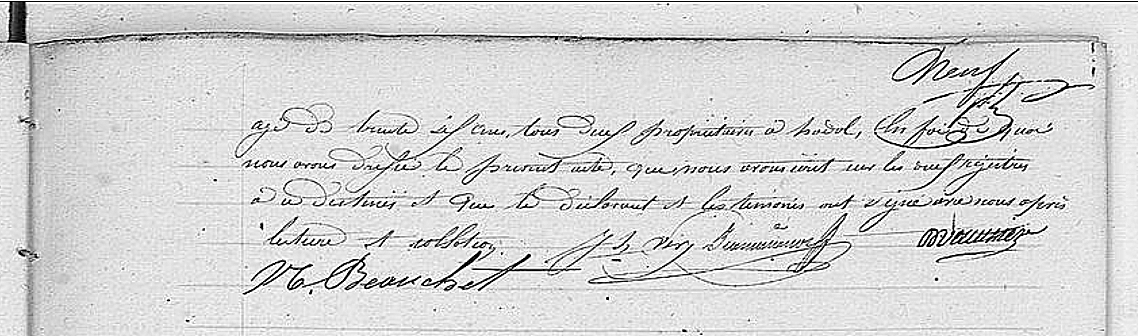 Neuf
agé de trente six ans, tous deux propriétaires à hadol, En foi de quoi
nous avons dressé le présent acte, que nous avons écrit sur les deux registres
à ce destinés et que le déclarant et les témoins ont signé avec nous après
lecture et collation
N. Beauchet